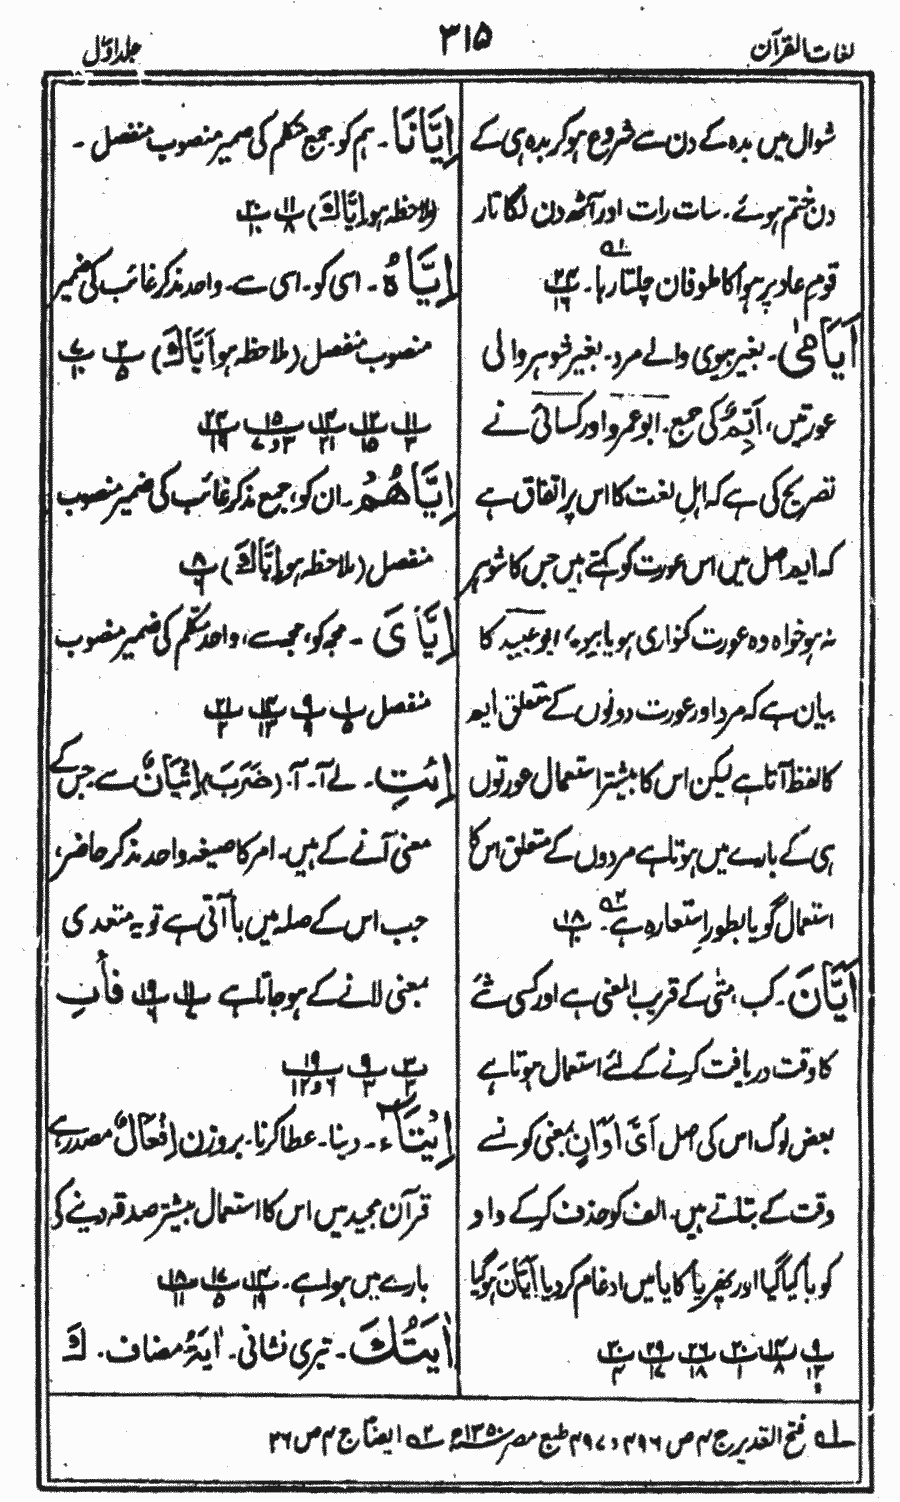 لغات القرآن
۳۱۵
جلد اوّل
شوال میں بدھ کے دن سے شروع ہو کر بدھ ہی کے
دن ختم ہوئے۔ سات رات اور آٹھ دن لگا تار
قوم عاد پر ہوا کا طوفان چلتا رہا۔
اَیَامٰی۔ بغیر بیوی والے مرد۔ بغیر شوہر والی
عورتیں، اَیِّمٌ کی جمع۔ ابو عمرو اور کسائی نے
تصریح کی ہے کہ اہلِ لغت کا اس پر اتفاق ہے
کہ ایم اصل میں اس عورت کو کہتے ہیں جس کا شوہر
نہ ہو خواہ وہ عورت کنواری ہو یا بیوہ، ابو عبید کا
بیان ہے کہ مرد اور عورت دونوں کے متعلق ایم
کا لفظ آتا ہے لیکن اس کا بیشتر استعمال عورتوں
ہی کے بارے میں ہوتا ہے مردوں کے متعلق اس کا
استعمال گویا بطور استعارہ ہے۔ ۱۸
اَیَّانَ۔ کب، متٰی کے قریب المعنی ہے اور کسی شئے
کا وقت دریافت کرنے کے لئے استعمال ہوتا ہے
بعض لوگ اس کی اصل اَیَّ اَوَانٍ بمعنی کونسے
وقت کے بتلاتے ہیں۔ الف کو حذف کر کے واو
کو یا کیا گیا اور پھر یا کا یا میں ادغام کر دیا اَیَّانَ ہو گیا
اِیَّانَا۔ ہم کو، جمع متکلم کی ضمیر منصوب منفصل۔
(ملاحظہ ہو اِیَّاكَ)
اِیَّاہُ۔ اسی کو۔ اسی سے۔ واحد مذکر غائب کی ضمیر
منصوب منفصل (ملاحظہ ہو اِیَّاكَ)
اِیَّاھُمْ۔ ان کو، جمع مذکر غائب کی ضمیر منصوب
منفصل (ملاحظہ ہو اِیَّاكَ)
اِیَّایَ۔ مجھ کو، مجھ سے، واحد متکلم کی ضمیر منصوب
منفصل
اِئْتِ۔ لے آ۔ آ۔ (ضَرَبَ) اِتْیَانٌ سے جس کے
معنی آنے کے ہیں۔ امر کا صیغہ واحد مذکر حاضر،
جب اس کے صلہ میں با آتی ہے تو یہ متعدی
بمعنی لانے کے ہو جاتا ہے فَأْتِ
اِیْتَآء۔ دینا۔ عطا کرنا۔ بروزن اِفْعَالٌ مصدر ہے
قرآن مجید میں اس کا استعمال بیشتر صدقہ دینے کی
بارے میں ہوا ہے۔
اٰیَتُكَ۔ تیری نشانی۔ اٰیَۃُ مضاف۔ كَ
لہ فتح القدیر ج ۴ ص ۴۹۶ و ۴۹۷ طبع مصر ۱۳۵۰ھ ۲ہ ایضًا ج ۴ ص ۳۶